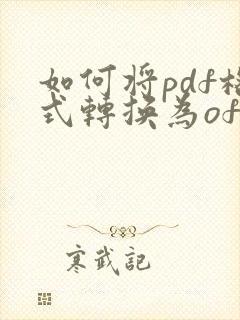 如何将pdf格
式轉換為of
寒武記